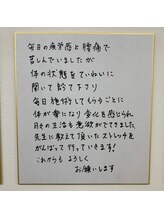 毎日の疲労感と腰痛で
苦しんでいましたが
体の状態をていねいに
聞いて診て下さり
毎日施術してもらうごとに
体が楽になり変化を感じられ
日々の生活も意欲がでてきました
先生に教えて頂いたストレッチを
がんばって行っていきます!
これからもよろしく
お願いします